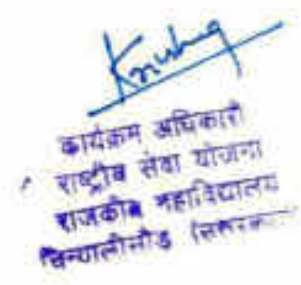 Krishna
कार्यक्रम अधिकारी
राष्ट्रीय सेवा योजना
राजकीय महाविद्यालय
चिन्यालीसौड़